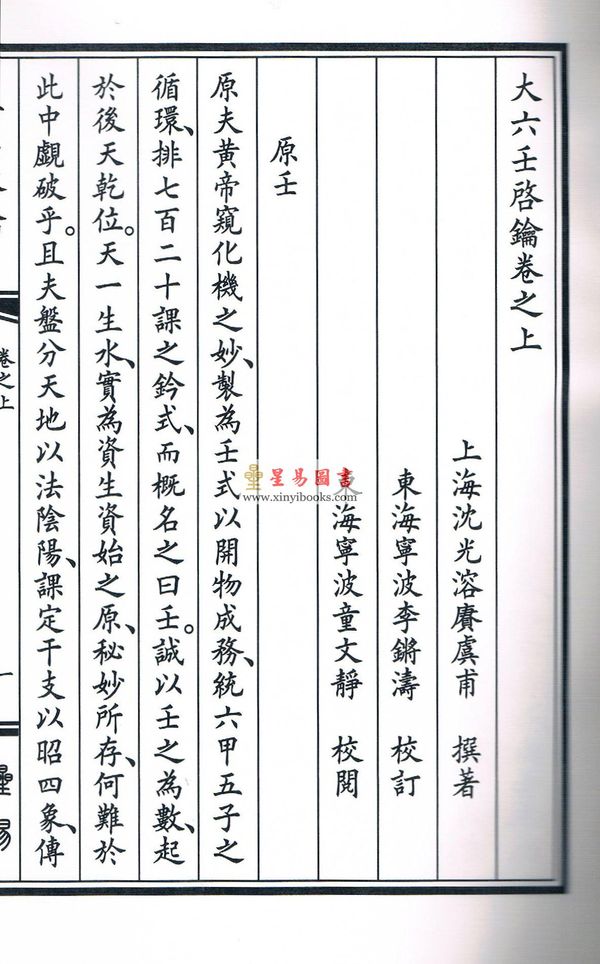 大六壬啓鑰卷之上
上海沈光溶賡虞甫 撰著
東海寧波李鏘濤 校訂
東海寧波童文靜 校閱
原壬
原夫黃帝窺化機之妙、製為壬式以開物成務、統六甲五子之
循環、排七百二十課之鈐式、而概名之曰壬。誠以壬之為數、起
於後天乾位。天一生水、實為資生資始之原、秘妙所存、何難於
此中覷破乎。且夫盤分天地以法陰陽、課定干支以昭四象、傳
卷之上
一
星易
星易圖書
www.xinyibooks.com